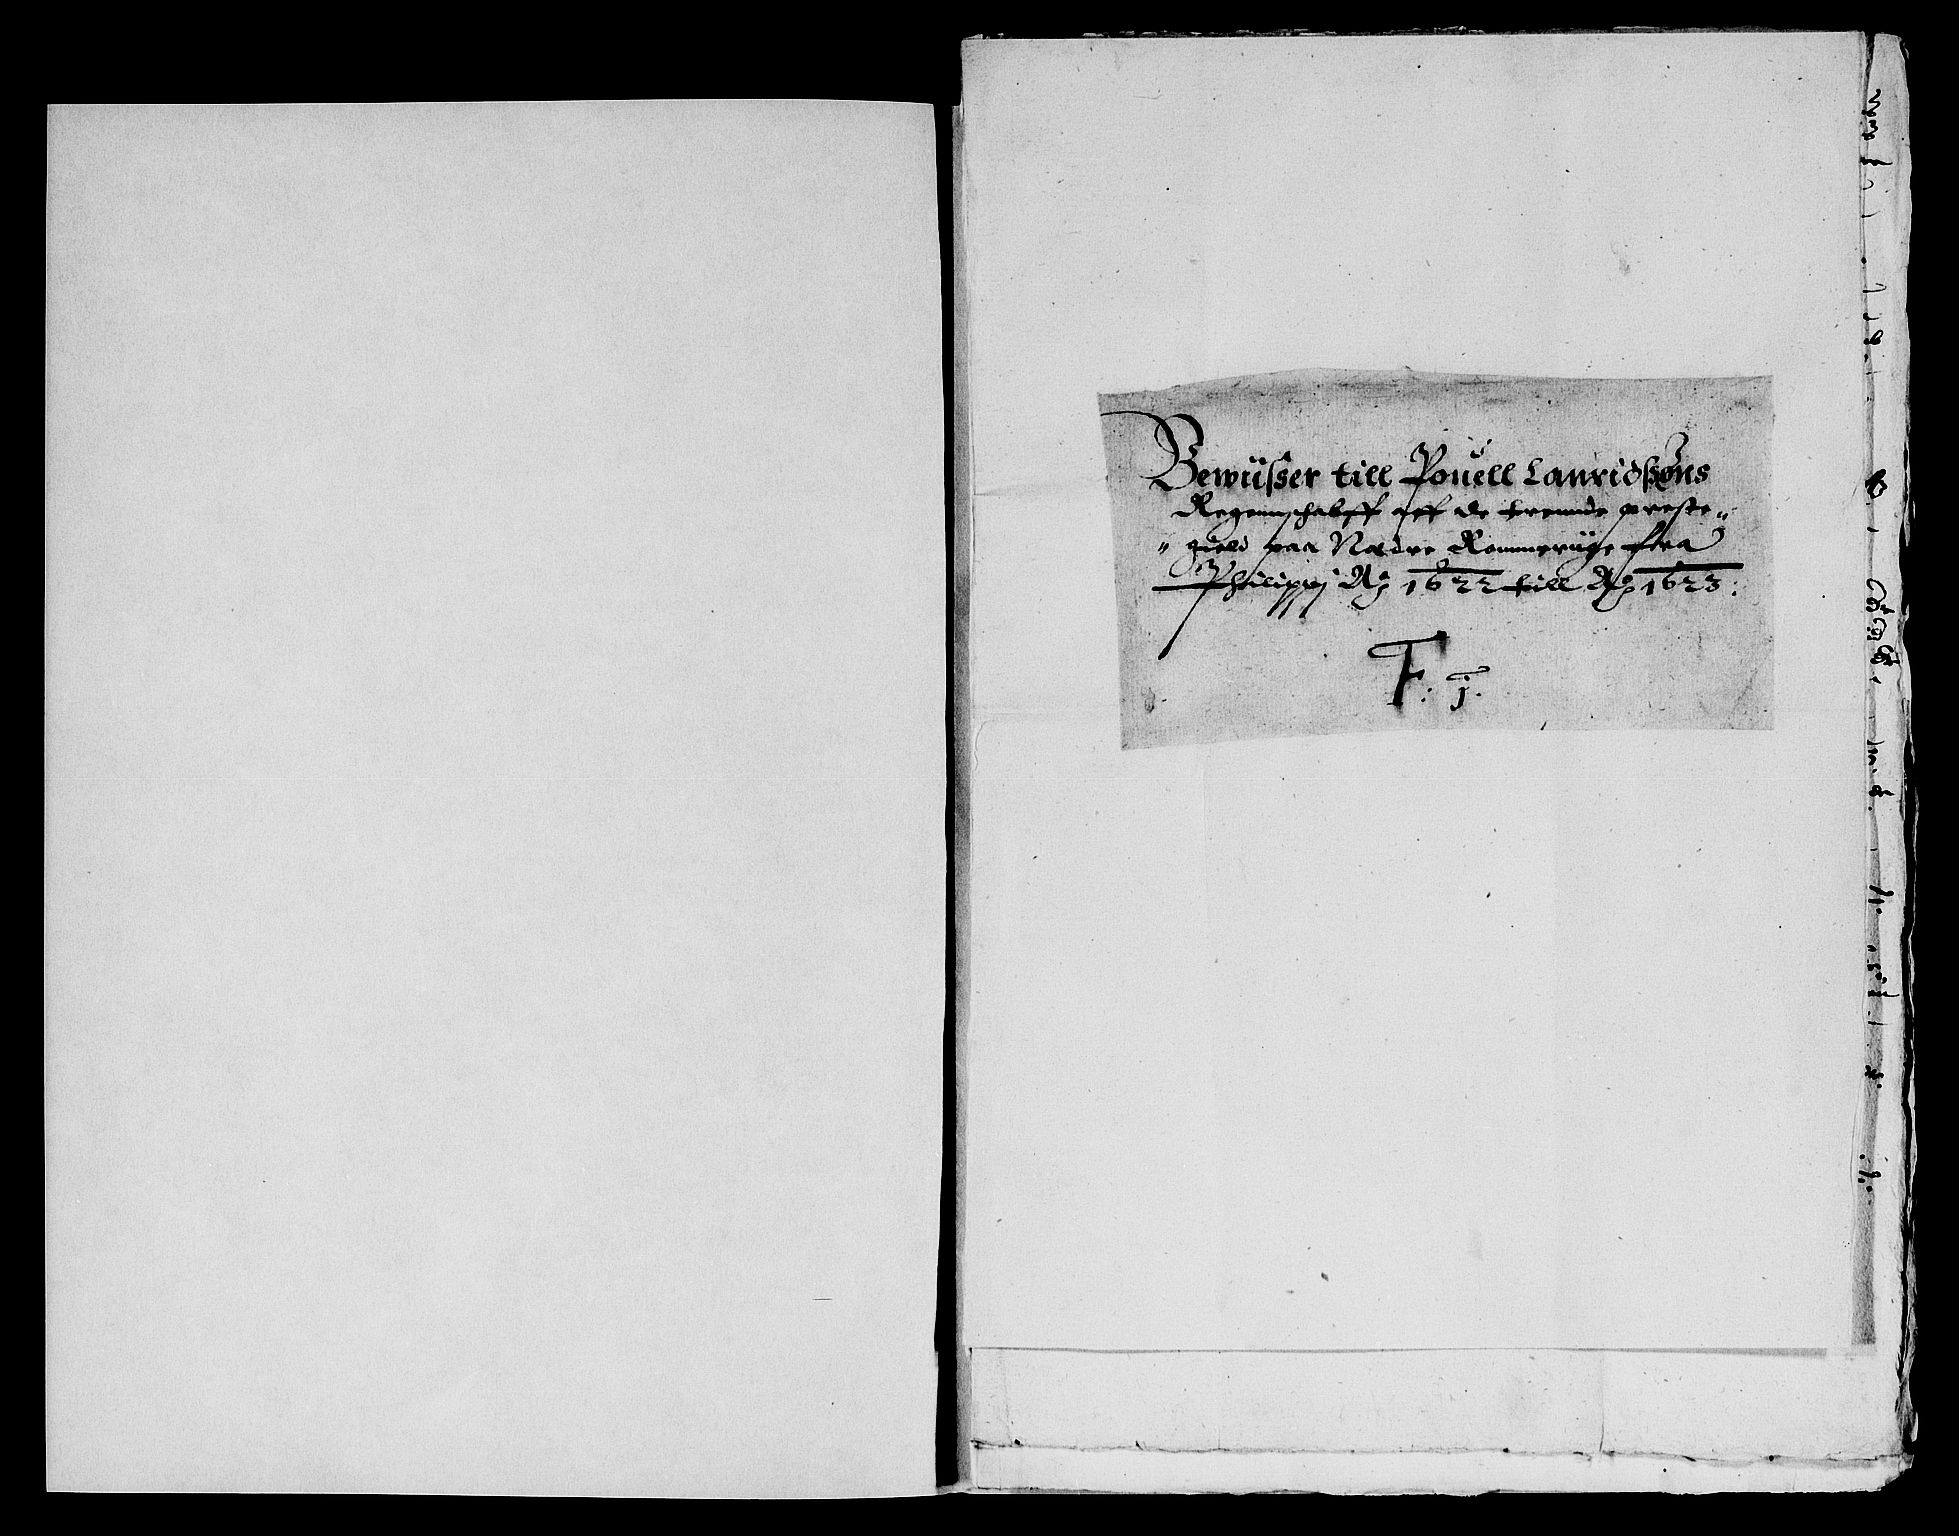 Bewüsser till Pouell Lauridssøns
Regennschabff aff de trennde preste„
„ gield paa Nædre Rommerüge fra
Philippj Aº 1622 till Aº 1623:
F: j.